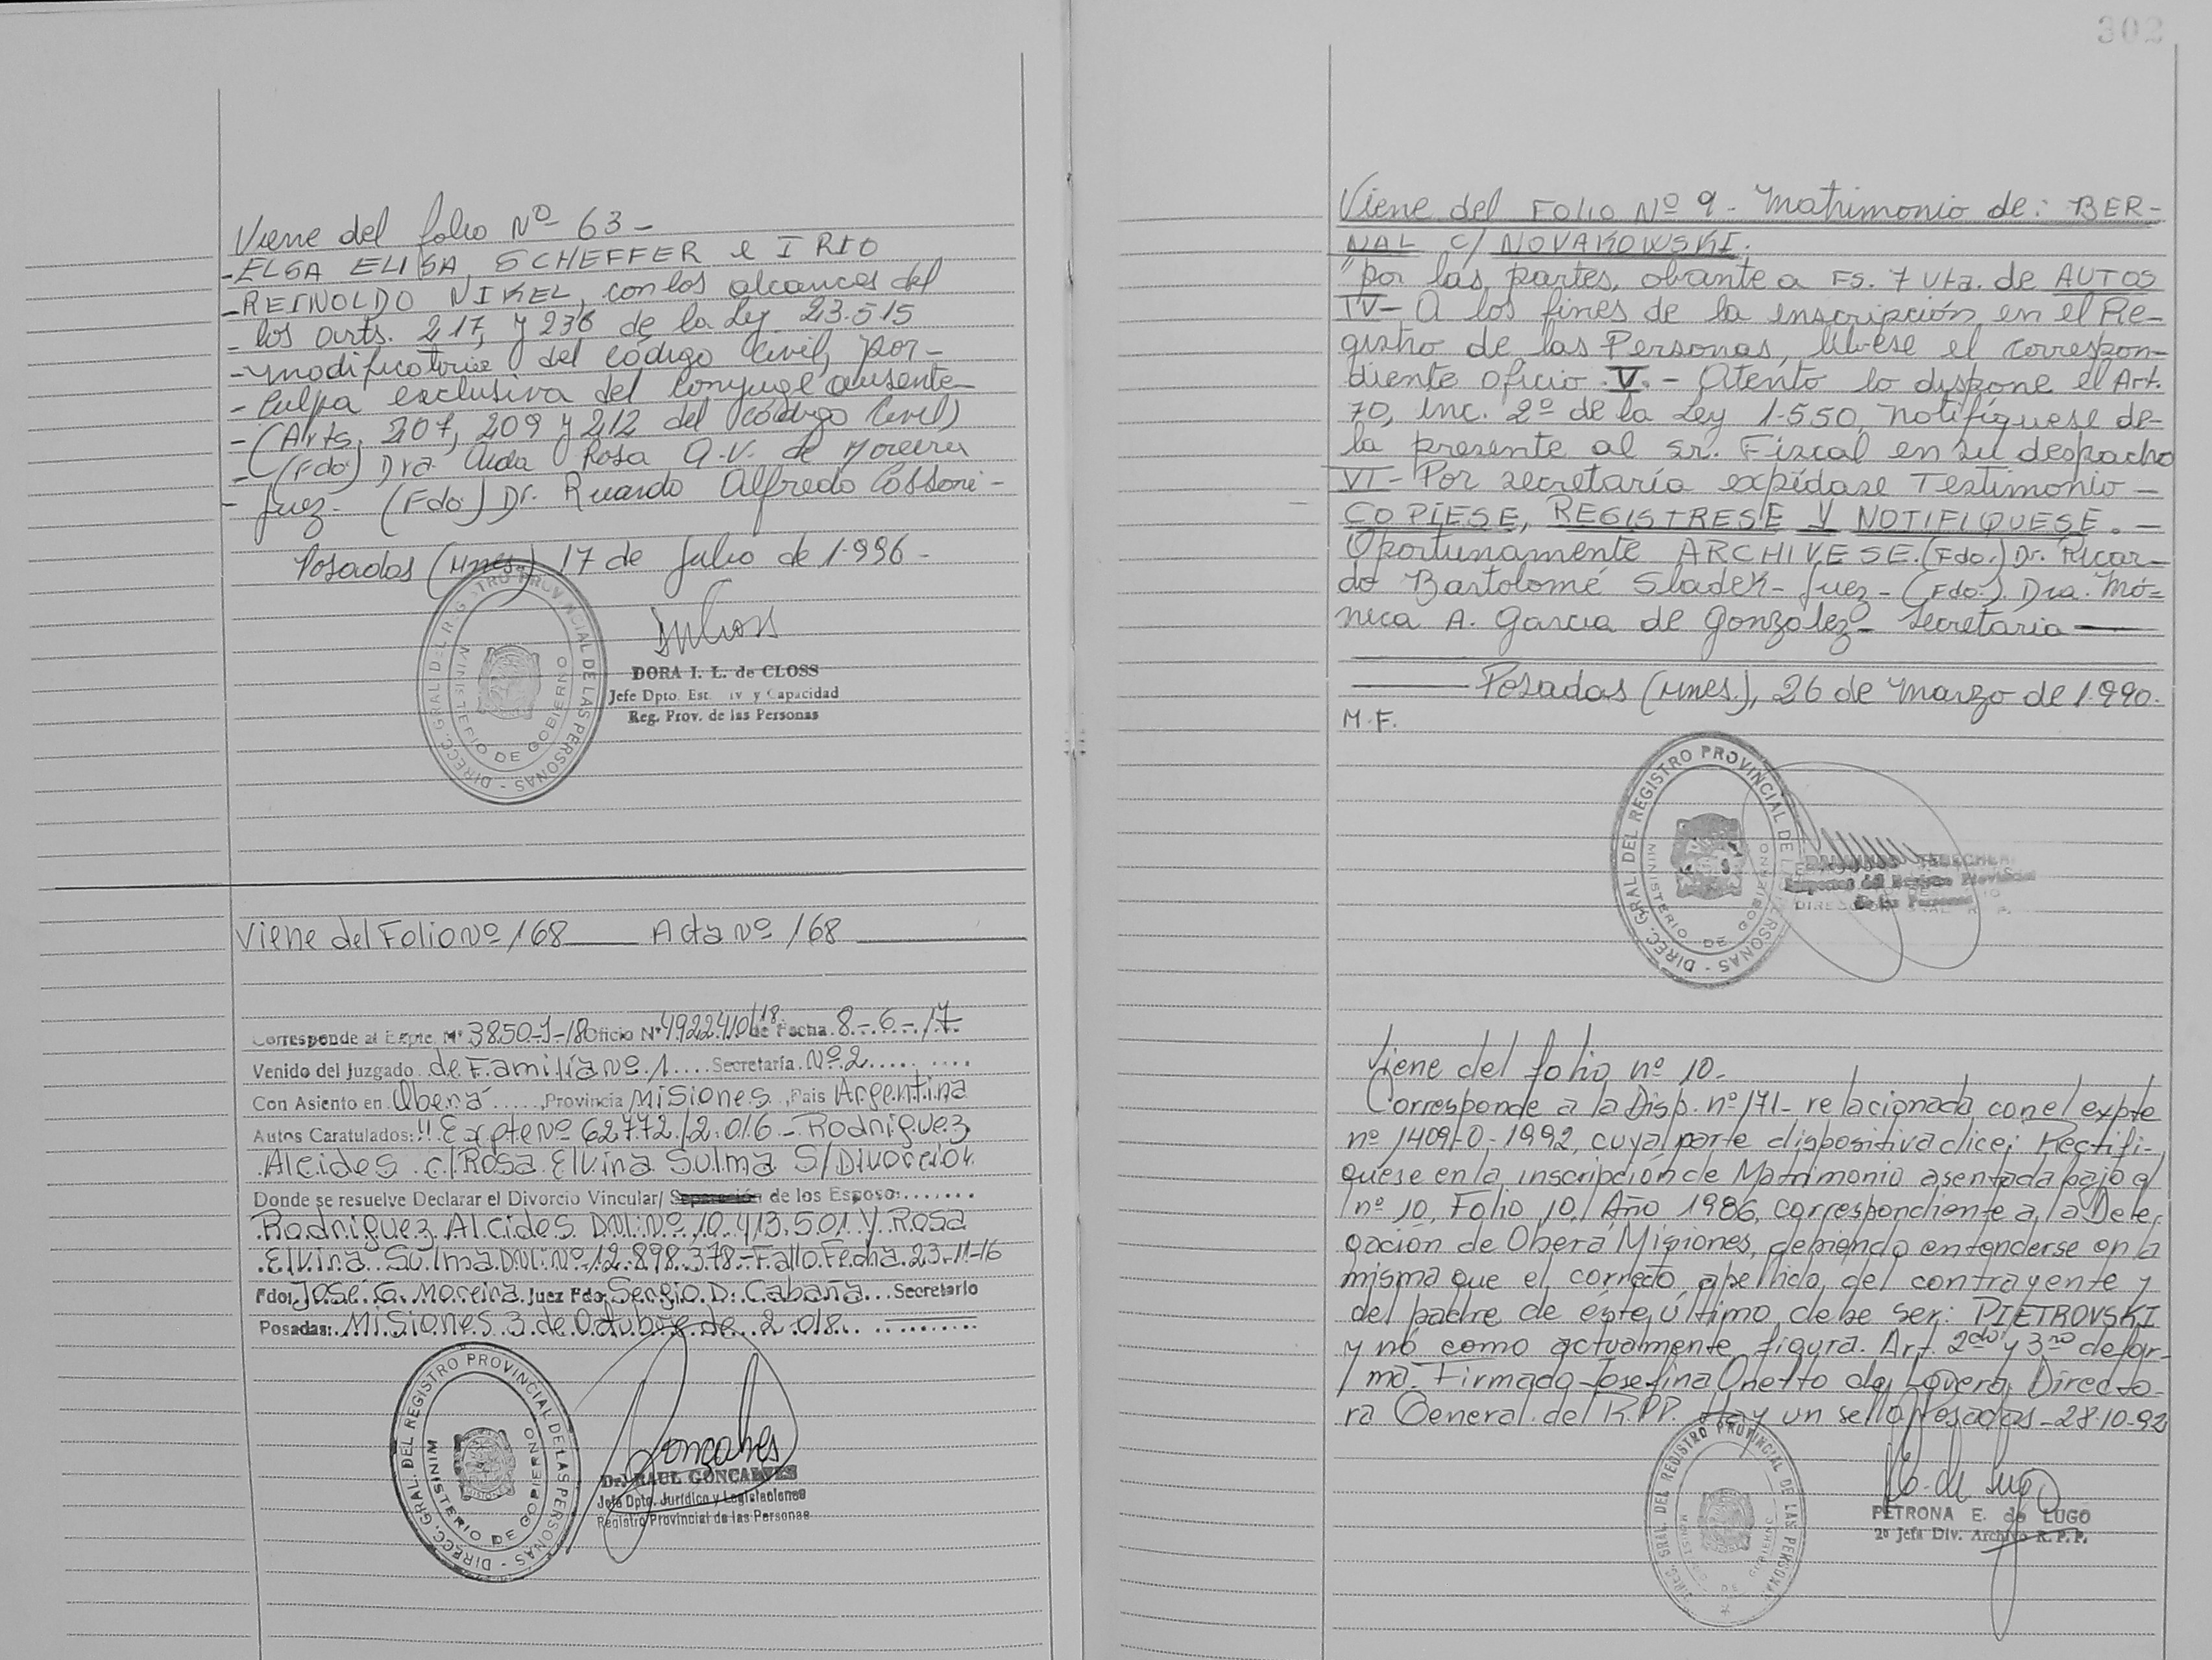 Viene del folio Nº 63-
-ELSA ELISA SCHEFFER e IRIO
-REINOLDO NIKEL, con los alcances del
- los arts. 217, y 236 de la Ley 23.515
- modificatoria del código Civil, por-
- culpa exclusiva del conyuge ausente-
- (Arts. 207, 209 y 212 del código Civil)
- (Fdo.) Dra. Aida Rosa A.V. de Moreira
- Juez- (Fdo.) Dr. Ricardo Alfredo Cossoni-
Posadas (Mnes.) 17 de Julio de 1.996-
DIREC. GRAL. DEL REGISTRO PROVINCIAL DE LAS PERSONAS -
MINISTERIO DE GOBIERNO
DORA I. L. de CLOSS
Jefe Dpto. Est. iv y Capacidad
Reg. Prov. de las Personas
Viene del Folio Nº 168 Acta Nº 168
Corresponde al Expte. Nº 3850-J-18 Oficio Nº 4922410/18 de Fecha 8-6-17
Venido del Juzgado de Familia Nº 1 Secretaría Nº 2
Con Asiento en Oberá, Provincia Misiones, País Argentina
Autos Caratulados: "Expte Nº 62772/2.016 - Rodriguez
Alcides c/ Rosa Elvina Sulma S/Divorcio".
Donde se resuelve Declarar el Divorcio Vincular/ Separación de los Esposo:
Rodriguez Alcides DNI: Nº 10.413.501 y Rosa
Elvina Sulma DNI: Nº 12.898.378-Fallo Fecha 23-11-16
Fdo: José G. Moreira Juez Fdo Sergio D. Cabaña Secretario
Posadas: Misiones 3 de Octubre de 2.018
DIREC. GRAL. DEL REGISTRO PROVINCIAL DE LAS PERSONAS -
MINISTERIO DE GOBIERNO
Goncalves
Dr. RAUL GONCALVES
Jefe Dpto. Jurídico y Legislaciones
Registro Provincial de las Personas
302
Viene del Folio Nº 9- Matrimonio de: BER-
NAL C/ NOVAKOWSKI.
"por las partes, obrante a Fs. 7 vta. de AUTOS
IV- A los fines de la inscripción en el Re-
gistro de las Personas, líbrese el correspon-
diente oficio. V.- Atento lo dispone el Art.
70, inc. 2º de la Ley 1.550, notifíquese de-
la presente al Sr. Fiscal en su despacho
VI- Por secretaría expídase Testimonio-
COPIESE, REGISTRESE Y NOTIFIQUESE.-
Oportunamente ARCHIVESE. (Fdo.) Dr. Ricar-
do Bartolomé Sladek- Juez- (Fdo.). Dra. Mó-
nica A. Garcia de Gonzalez- Secretaria
Posadas (Mnes.), 26 de Marzo de 1.990.
M.F.
DIREC. GRAL. DEL REGISTRO PROVINCIAL DE LAS PERSONAS -
MINISTERIO DE GOBIERNO
del Registro Provincial
de las Personas
Viene del folio nº 10-
Corresponde a la Disp. nº 171- relacionada con el expte
nº 1409-O-1992, cuya parte dispositiva dice: Rectifí-
quese en la inscripción de Matrimonio asentada bajo el
nº 10, Folio 10, Año 1986, correspondiente a la Dele-
gación de Oberá Misiones, debiendo entenderse en la
misma que el correcto apellido del contrayente y
del padre de éste último debe ser: PIETROVSKI
y nó como actualmente figura. Art. 2do y 3ro de for-
ma. Firmado Josefina Onetto de Lovera Directo-
ra General del R.P.P. Hay un sello Posadas-28-10-92
DIREC. GRAL. DEL REGISTRO PROVINCIAL DE LAS PERSONAS
MINISTERIO DE GOBIERNO
PETRONA E. de LUGO
2º Jefa Div. Archivo R.P.P.